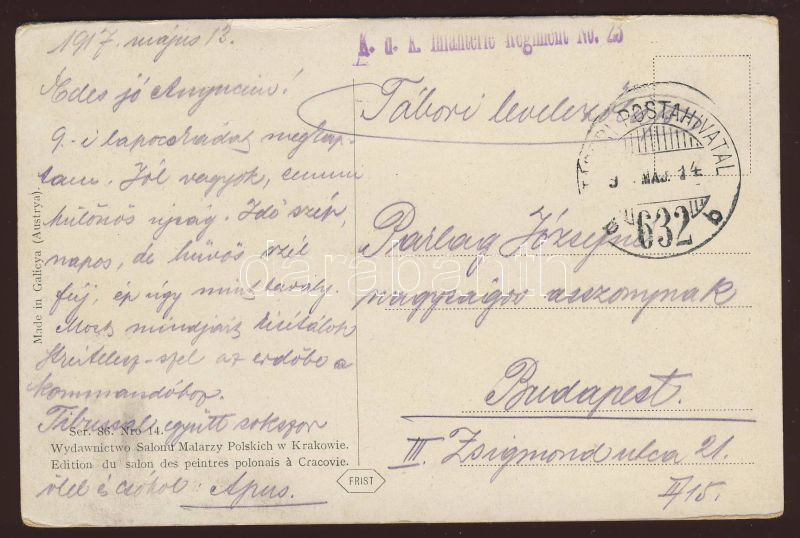 1917. május 13.
Édes jó Anyucim!
9.-i lapocskádat megkap-
tam. Jól vagyok, semmi
különös újság. Idő szép,
napos, de hűvös szél
fúj, ép úgy mint tavaly.
Most mindjárt kisétálok
az erdőbe a
kommandóhoz.
Tibussal együtt sokszor
ölel és csókol: Apus.
Made in Galicya (Austrya).
Ser. 86. Nro 14.
Wydawnictwo Salonu Malarzy Polskich w Krakowie.
Edition du salon des peintres polonais à Cracovie.
FRIST
K. u. K. Infanterie Regiment No. 29
Tábori levelező
TÁBORI POSTAHIVATAL
MÁJ. 14
632
b
Barbag Józsefné
nagyságos asszonynak
Budapest.
III. Zsigmond utca 21.
II/15.
darabanth